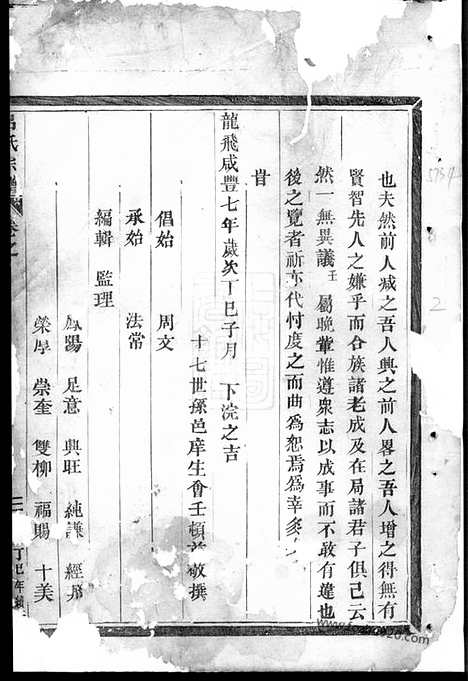 也夫然前人减之吾人興之前人畧之吾人增之得無有
賢智先人之嫌乎而合族諸老成及在局諸君子俱已云
然一無異議王屬晚輩惟遵衆志以成事而不敢有違也
後之覽者祈亦代忖度之而曲為恕焉為幸矣
旹
龍飛咸豐七年歲次丁巳子月 下浣之吉
十七世孫邑庠生會壬頓首敬撰
倡始 周文
承始 法常
編輯 監理
鳳陽 足意 興旺 純謙 經
榮厚 崇奎 雙柳 福賜 十美
氏宗譜 卷之一
丁巳年
5734
2